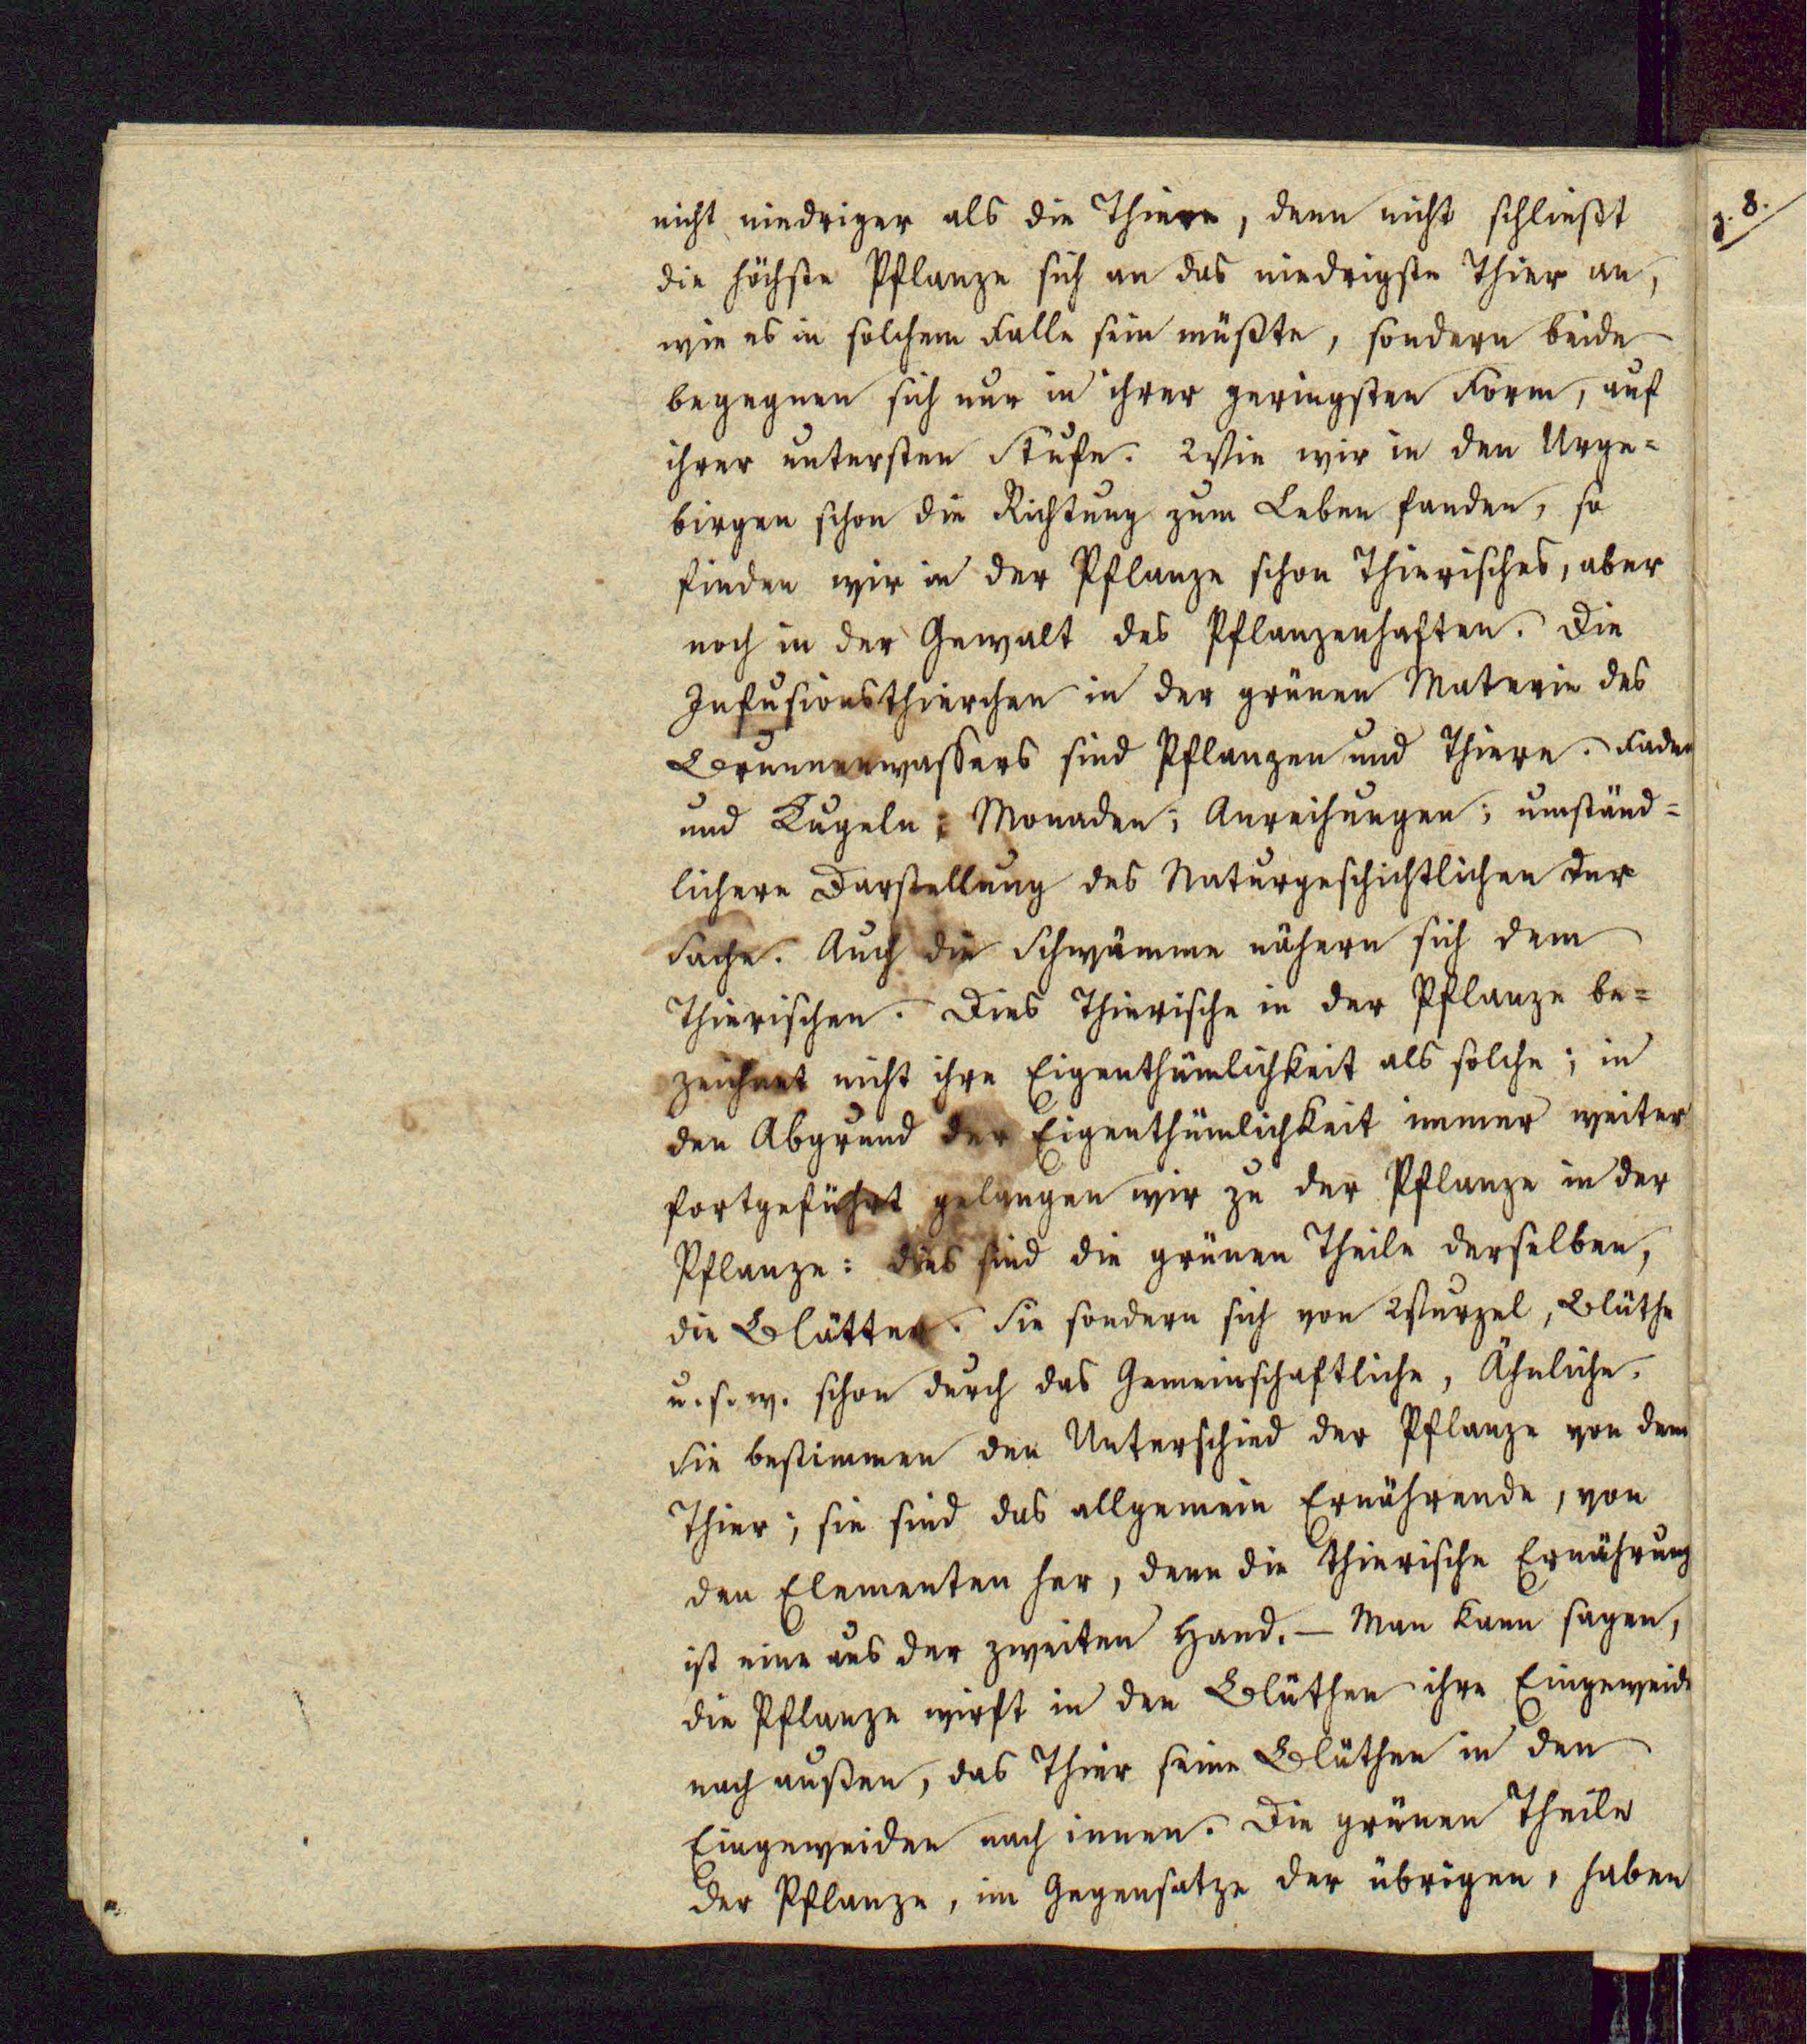 nicht niedriger als die Thiere, denn nicht schließt
die höchste Pflanze sich an das niedrigste Thier an,
wie es in solchem Falle sein müßte, sondern beide
begegnen sich nur in ihrer geringsten Form, auf
ihrer untersten Stufe. Wie wir in den Urge=
birgen schon die Richtung zum Leben fanden, so
finden wir in der Pflanze schon Thierisches, aber
noch in der Gewalt des Pflanzenhaften. Die
Infusionsthierchen in der grünen Materie des
Brunnenwassers sind Pflanzen und Thiere. Faden
und Kugeln; Monaden; Anreihungen; umständ=
lichere Darstellung des Naturgeschichtlichen der
Sache. Auch die Schwämme nähern sich dem
Thierischen. Dies Thierische in der Pflanze be=
zeichnet nicht ihre Eigenthümlichkeit als solche; in
den Abgrund der Eigenthümlichkeit immer weiter
fortgeführt gelangen wir zu der Pflanze in der
Pflanze: dies sind die grünen Theile derselben,
die Blätter. Sie sondern sich von Wurzel, Blüthe
u. s. w. schon durch das Gemeinschaftliche, Ähnliche.
Sie bestimmen den Unterschied der Pflanze von dem
Thier; sie sind das allgemein Ernährende, von
den Elementen her, denn die thierische Ernährung
ist eine aus der zweiten Hand. — Man kann sagen,
die Pflanze wirft in den Blüthen ihre Eingeweide
nach außen, das Thier seine Blüthen in den
Eingeweiden nach innen. Die grünen Theile
der Pflanze, im Gegensatze der übrigen, haben
8.